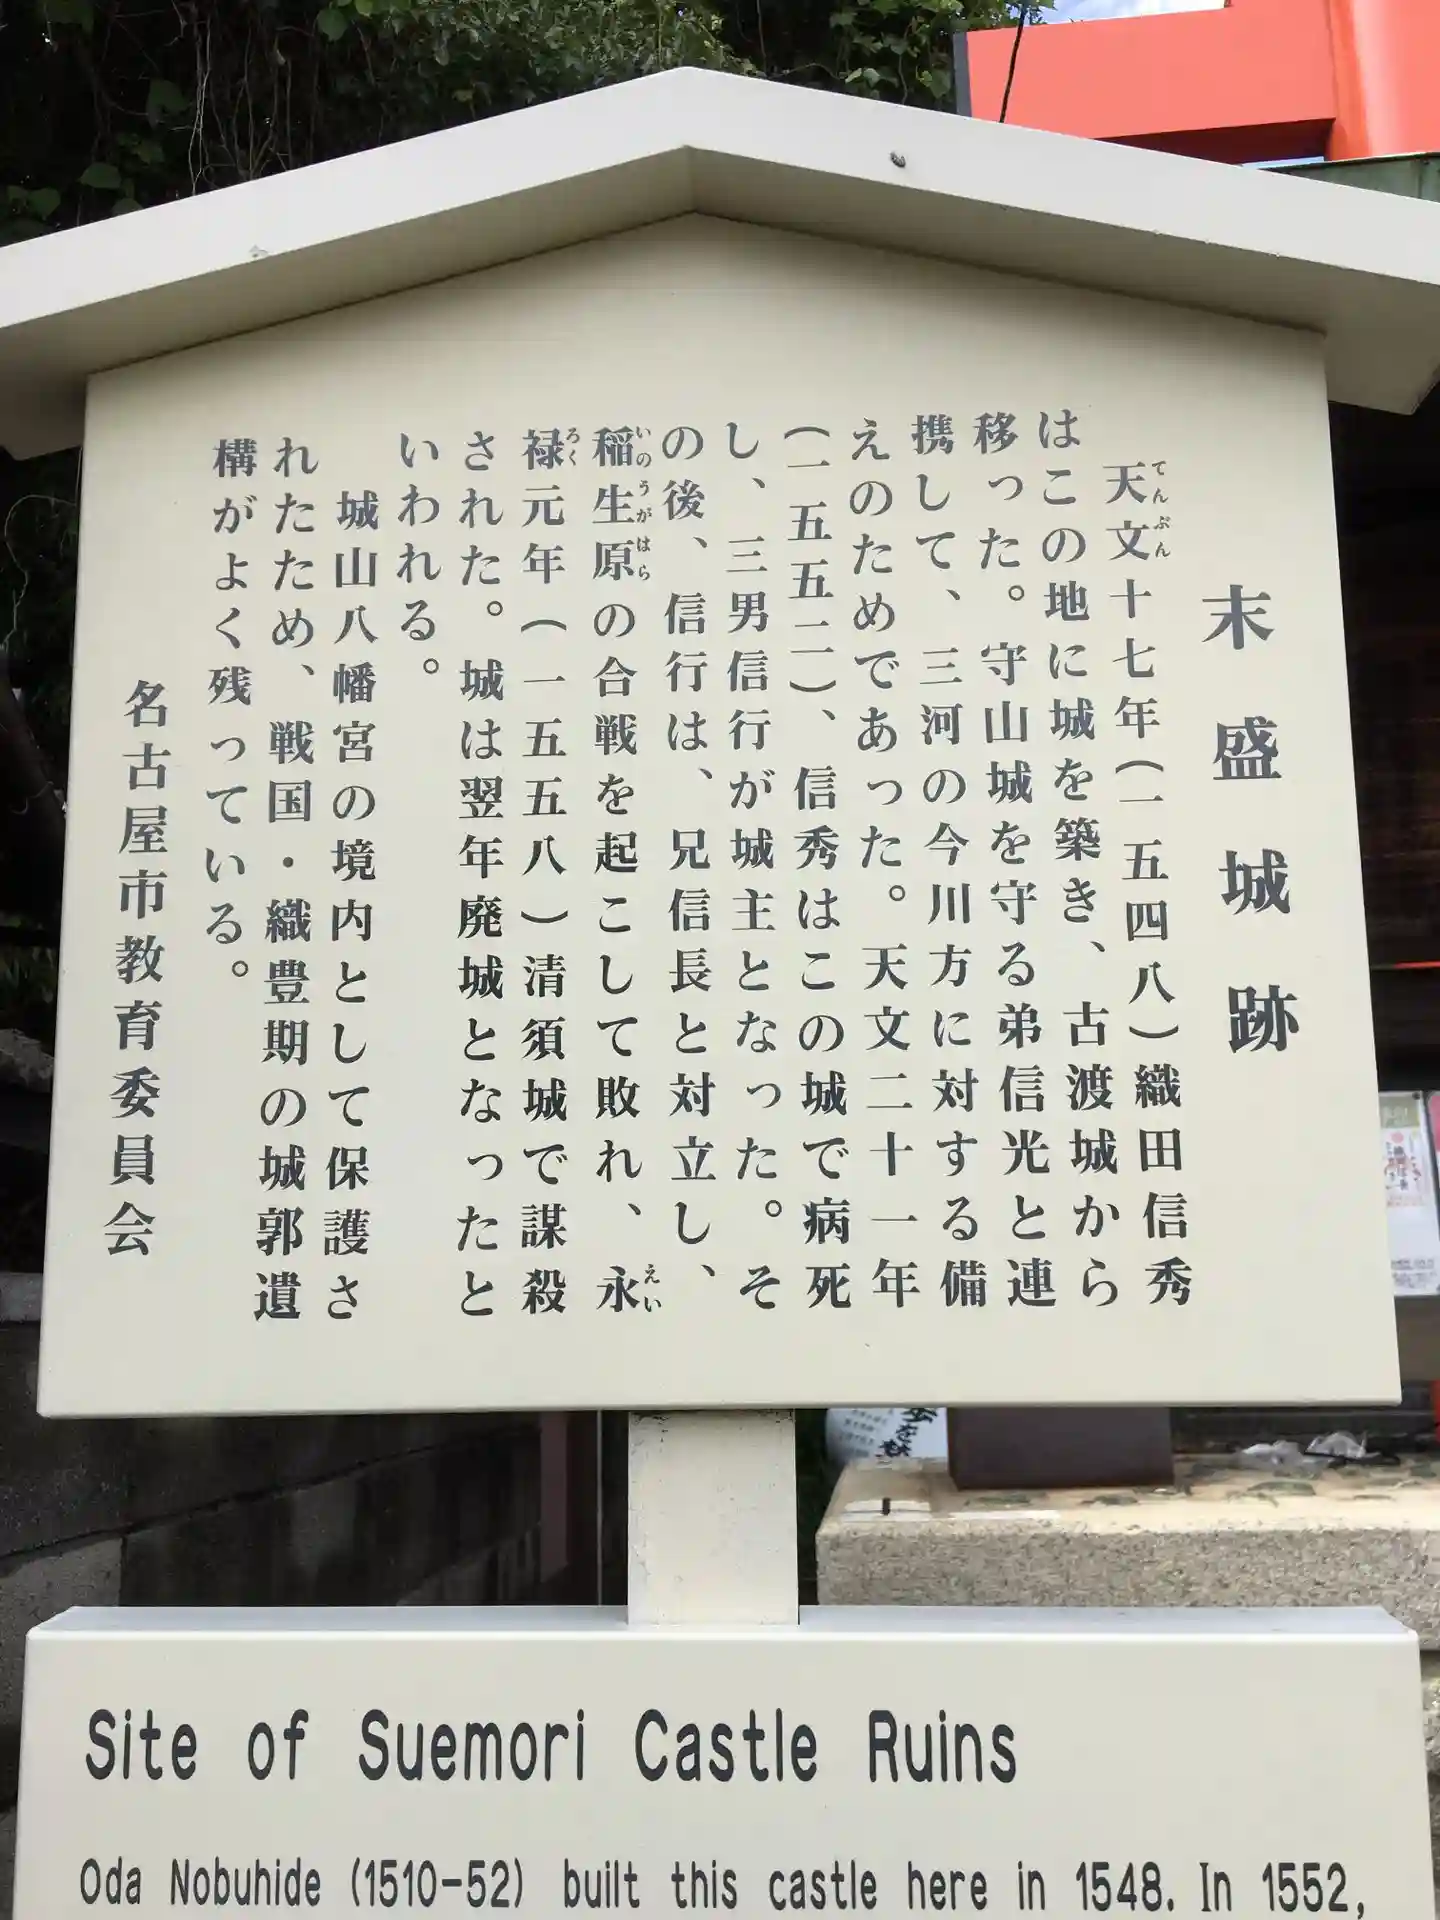 末盛城跡
天文十七年(一五四八)織田信秀
はこの地に城を築き、古渡城から
移った。守山城を守る弟信光と連
携して、三河の今川方に対する備
えのためであった。天文二十一年
(一五五二)、信秀はこの城で病死
し、三男信行が城主となった。そ
の後、信行は、兄信長と対立し、
稲生原の合戦を起こして敗れ、永
禄元年(一五五八)清須城で謀殺
された。城は翌年廃城となったと
いわれる。
城山八幡宮の境内として保護さ
れたため、戦国・織豊期の城郭遺
構がよく残っている。
名古屋市教育委員会
Site of Suemori Castle Ruins
Oda Nobuhide (1510-52) built this castle here in 1548. In 1552,